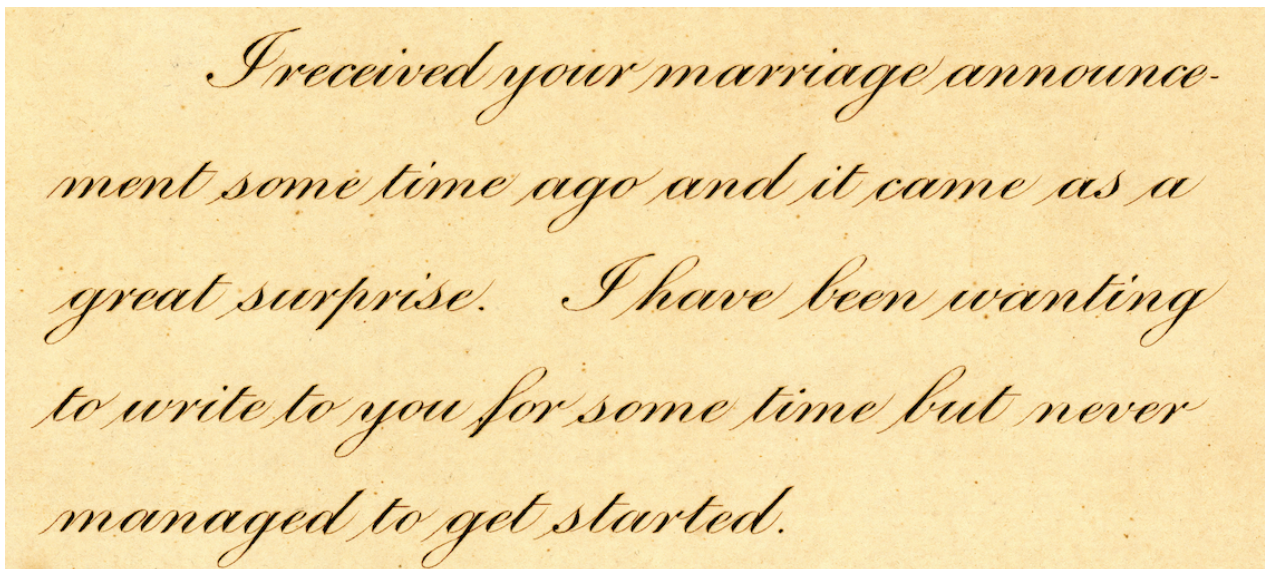 I received your marriage announce-
ment some time ago and it came as a
great surprise. I have been wanting
to write to you for some time but never
managed to get started.